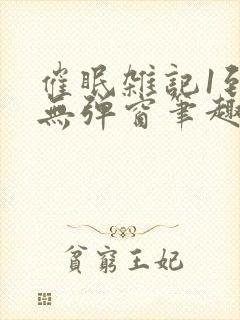 催眠雑記1至
無弹窗筆趣
貧窮王妃